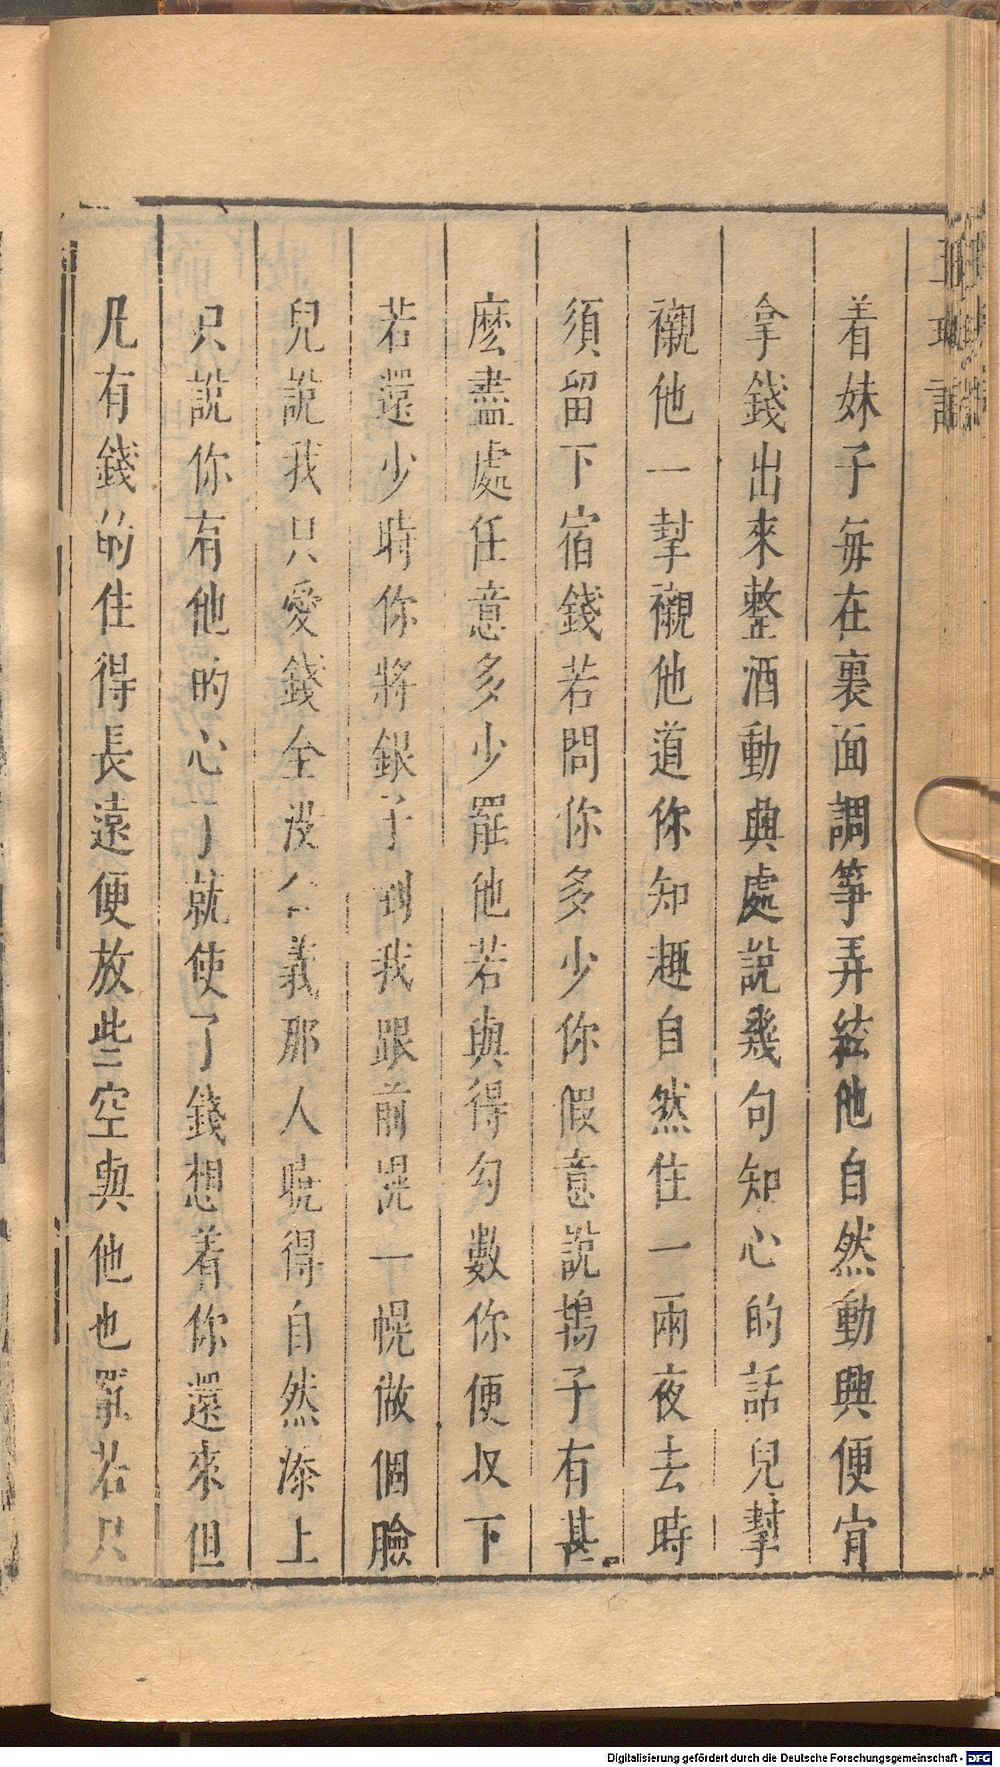 着妹子每在裏面調箏弄絃他自然動興便肯
拿錢出來整酒動興處說幾句知心的話兒幫
襯他一幫襯他道你知趣自然住一兩夜去時
須留下宿錢若問你多少你假意說鴇子有甚
麽盡處任意多少罷他若與得勾數你便収下
若還少時你將銀子到我跟前謊一幌做個臉
兒說我只愛錢全沒仁義那人曉得自然添上
只說你有他的心了就使了錢想着你還來但
凡有錢的住得長遠便放些空與他也罷若只
Digitalisierung gefördert durch die Deutsche Forschungsgemeinschaft - DFG